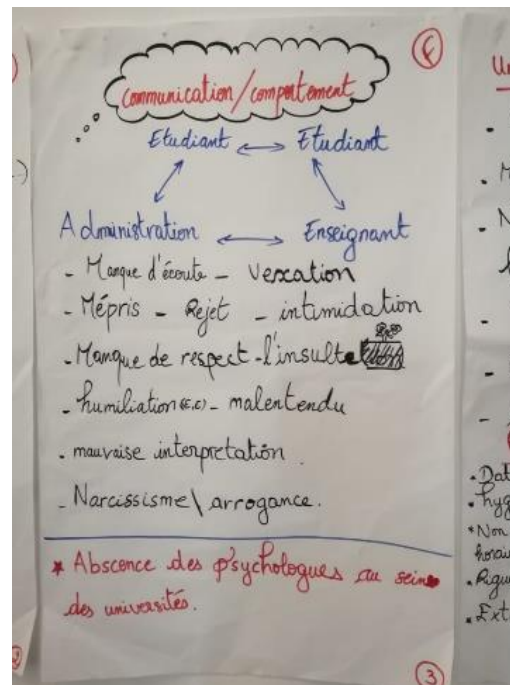 6
Communication/comportement
Etudiant ↔ Etudiant
Administration ↔ Enseignant
- Manque d'écoute - Vexation
- Mépris - Rejet - intimidation
- Manque de respect - l'insulte
- humiliation (E,E) - malentendu
- mauvaise interpretation.
- Narcissisme \ arrogance.
* Abscence des psychologues au sein
des universités.
3